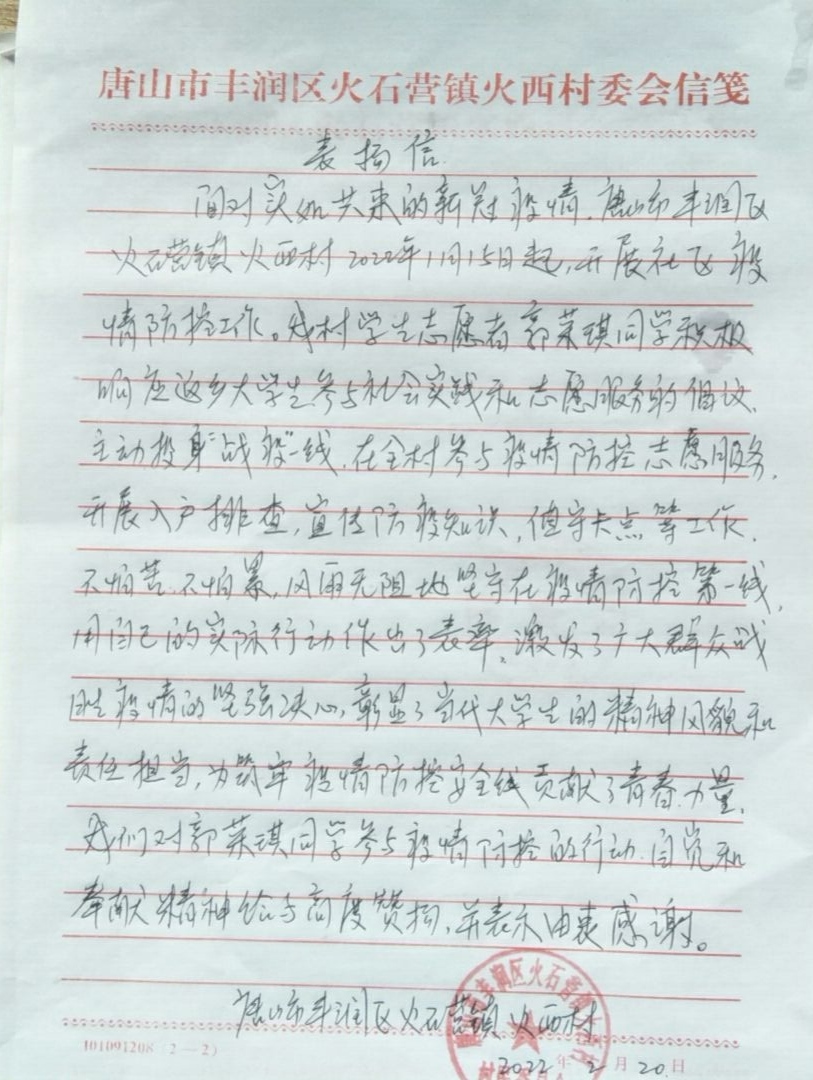 唐山市丰润区火石营镇火西村委会信笺
表扬信
面对突如其来的新冠疫情，唐山市丰润区
火石营镇火西村2022年11月15日起，开展社区疫
情防控工作。我村学生志愿者郭莱琪同学积极
响应返乡大学生参与社会实践和志愿服务的倡议，
主动投身“战疫”一线，在全村参与疫情防控志愿服务，
开展入户排查，宣传防疫知识，值守卡点等工作，
不怕苦、不怕累，风雨无阻地坚守在疫情防控第一线，
用自己的实际行动作出了表率，激发了广大群众战
胜疫情的坚强决心，彰显了当代大学生的精神风貌和
责任担当，为筑牢疫情防控安全线贡献了青春力量，
我们对郭莱琪同学参与疫情防控的行动、自觉和
奉献精神给与高度赞扬，并表示由衷感谢。
唐山市丰润区火石营镇火西村
2022年2月20日
101091208（2—2）